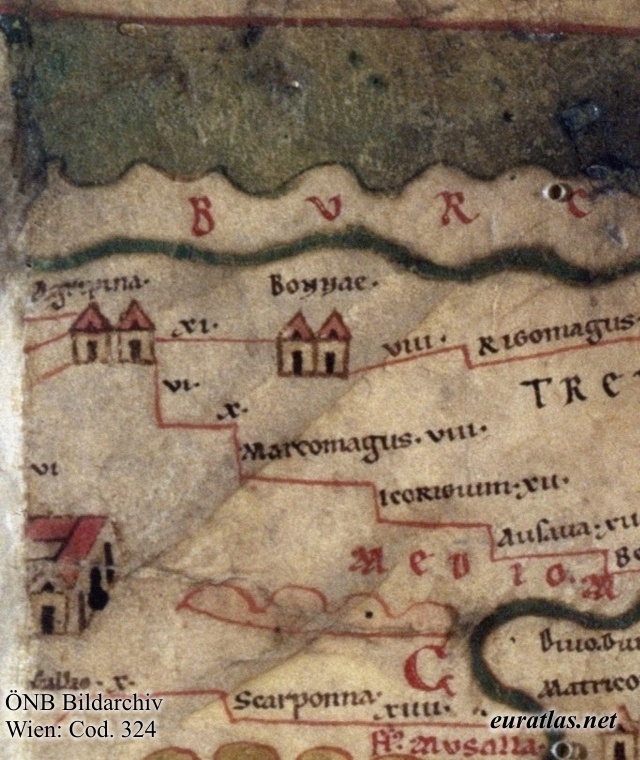 B V R C
Agripina·
Bonnae·
XI·
VIII·
Rigomagus·
TRE
VI·
X·
Marcomagus·VIII·
VI
Icorigium·XII·
Ausava·XII
MEDIO·M
Be
C
Divo
Matrico
X·
Scarponna·
XIIII·
Fl. Musalla·
ÖNB Bildarchiv
Wien: Cod. 324
euratlas.net